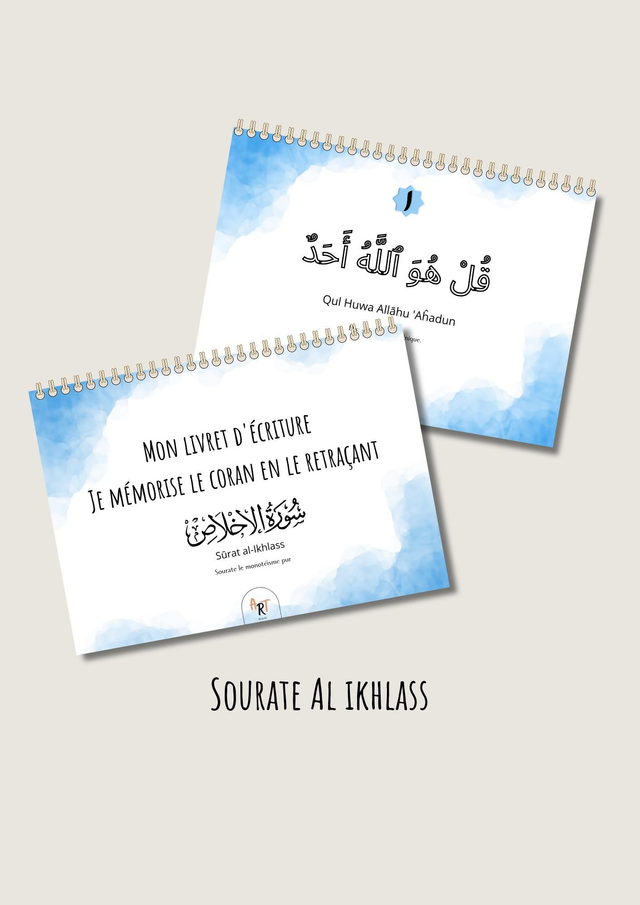 ١
قُلْ هُوَ ٱللَّهُ أَحَدٌ
Qul Huwa Allāhu 'Aĥadun
Mon livret d'écriture
Je mémorise le coran en le retraçant
سُورَةُ الإِخْلَاصِ
Sūrat al-Ikhlass
Sourate le monotéisme pur
ART
Sourate Al ikhlass